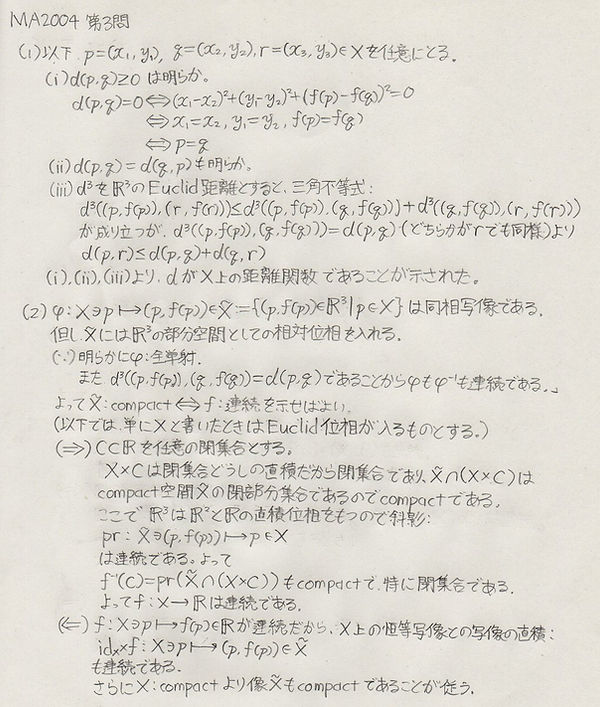 MA2004 第3問
(1)以下 p=(x₁,y₁), q=(x₂,y₂), r=(x₃,y₃)∈Xを任意にとる。
(i)d(p,q)≧0は明らか。
d(p,q)=0⇔(x₁-x₂)²+(y₁-y₂)²+(f(p)-f(q))²=0
⇔x₁=x₂, y₁=y₂, f(p)=f(q)
⇔p=q
(ii)d(p,q)=d(q,p)も明らか。
(iii)d³をℝ³のEuclid距離とすると、三角不等式:
d³((p,f(p)),(r,f(r)))≤d³((p,f(p)),(q,f(q)))+d³((q,f(q)),(r,f(r)))
が成り立つが、d³((p,f(p)),(q,f(q)))=d(p,q)(どちらかがrでも同様)より
d(p,r)≤d(p,q)+d(q,r)
(i),(ii),(iii)より、dがX上の距離関数であることが示された。
(2) φ:X∋p↦(p,f(p))∈X̃:={(p,f(p))∈ℝ³|p∈X}は同相写像である。
但し、X̃にはℝ³の部分空間としての相対位相を入れる。
(∵)明らかにφ:全単射.
また d³((p,f(p)),(q,f(q)))=d(p,q)であることからφもφ⁻¹も連続である。」
よってX̃:compact⇔f:連続を示せばよい.
(以下では,単にXと書いたときはEuclid位相が入るものとする。)
(⇒) C⊂ℝを任意の閉集合とする。
X×Cは閉集合どうしの直積だから閉集合であり、X̃∩(X×C)は
compact空間X̃の閉部分集合であるのでcompactである。
ここでℝ³はℝ²とℝの直積位相をもつので斜影:
pr: X̃∋(p,f(p))↦p∈X
は連続である。よって
f⁻¹(C)=pr(X̃∩(X×C))もcompactで、特に閉集合である。
よってf:X→ℝは連続である。
(⇐) f:X∋p↦f(p)∈ℝが連続だから、X上の恒等写像との写像の直積:
idₓ×f:X∋p↦(p,f(p))∈X̃
も連続である.
さらにX:compactより像X̃もcompactであることが従う.